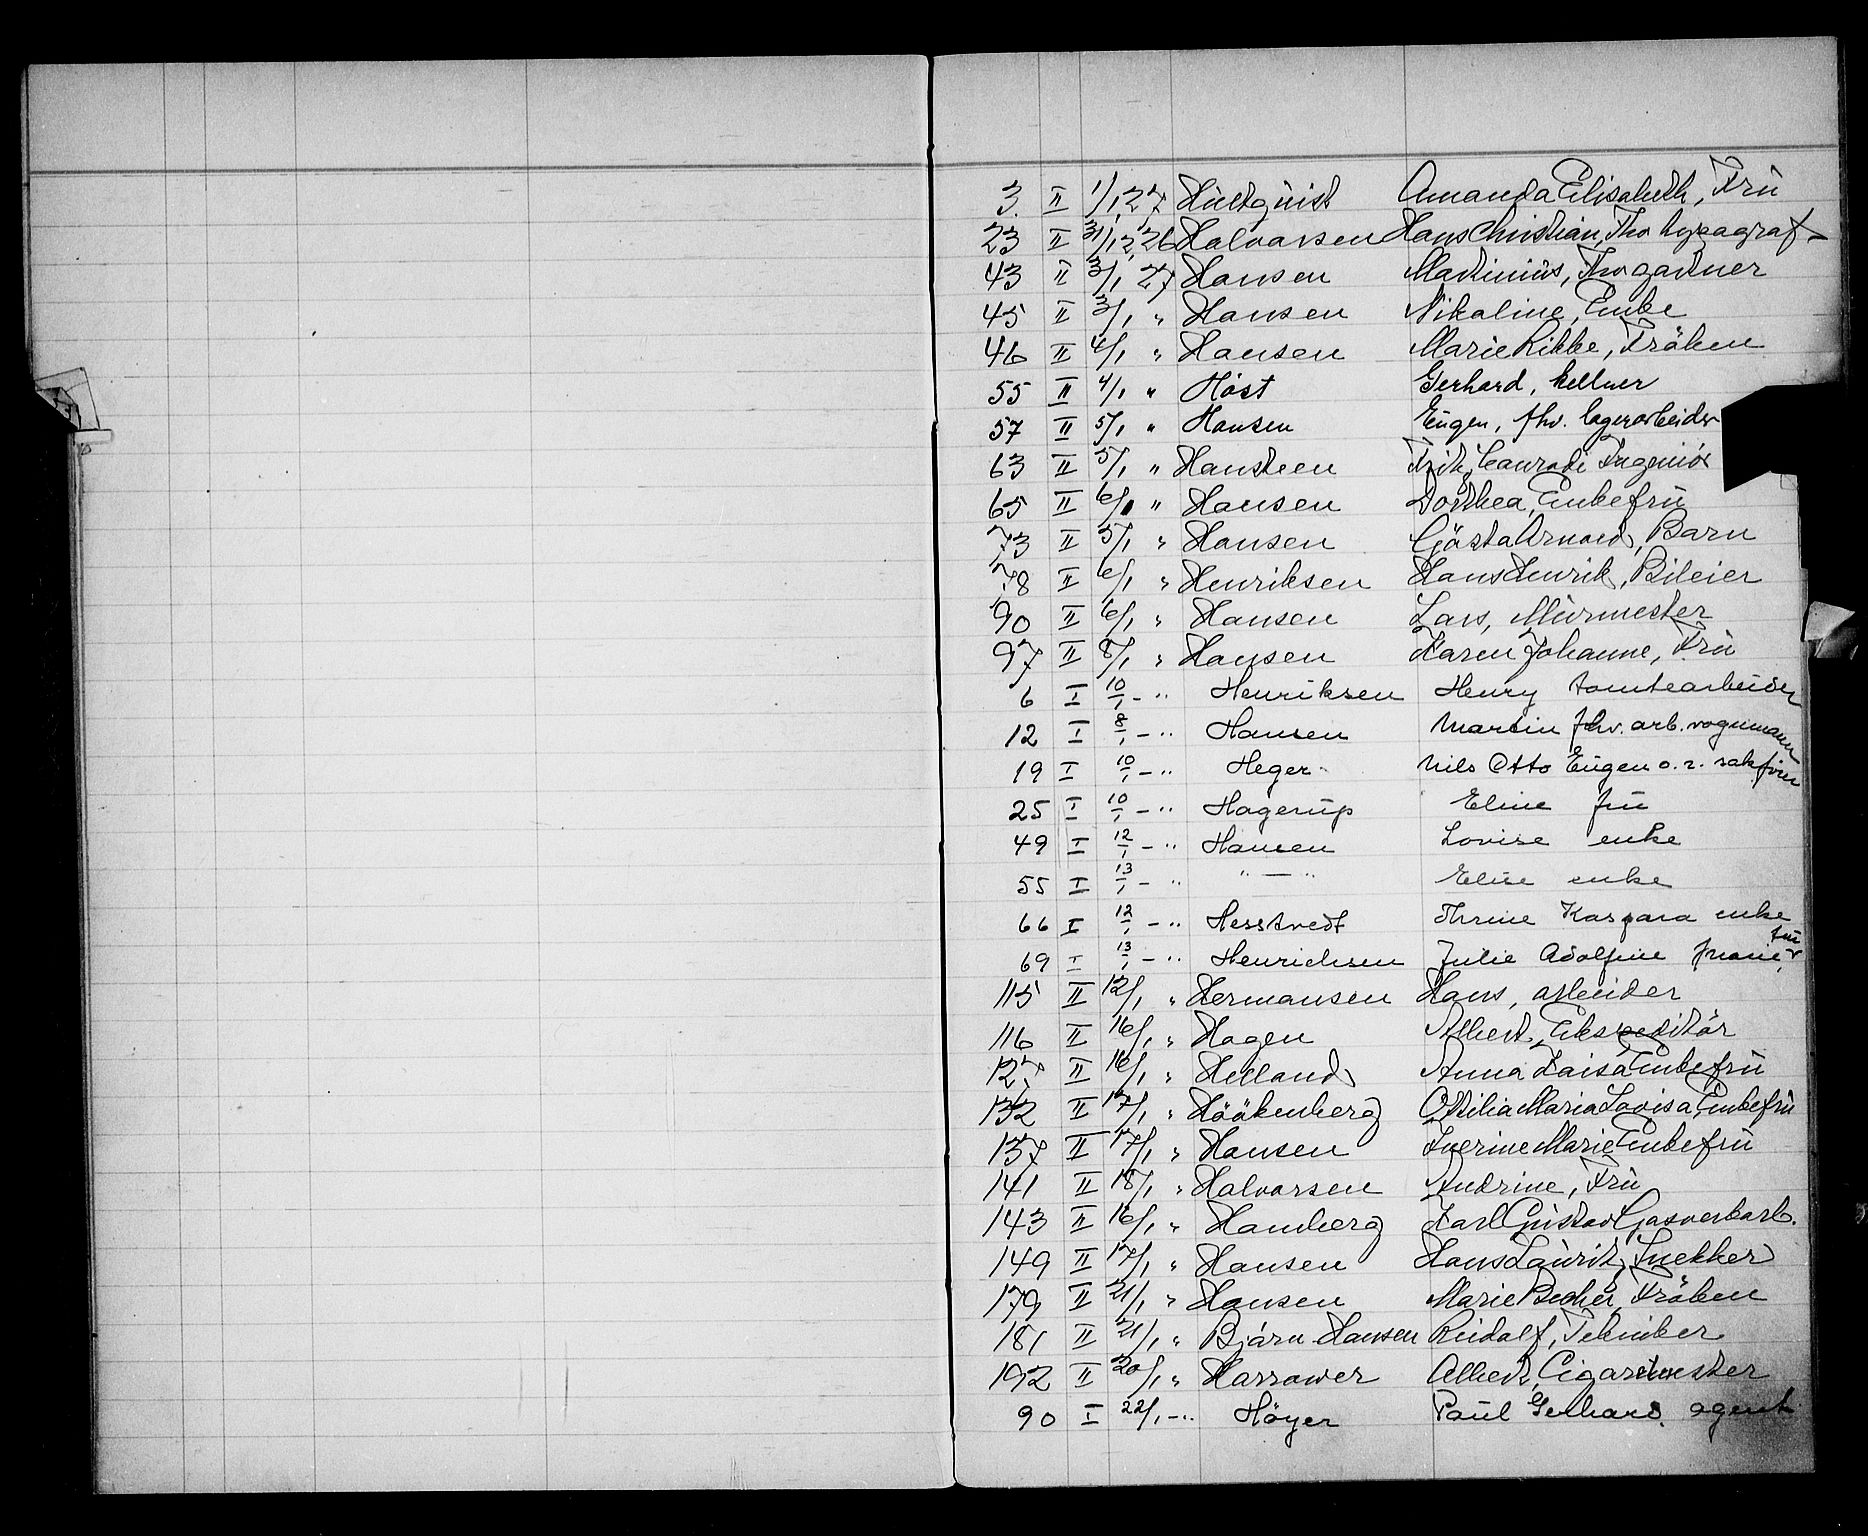 3. II 1/1 27 Hultquist Amanda Elisabeth, Fru
23 II 31/12 26 Halvorsen Hans Christian, Fhv typograf
43 II 3/1 27 Hansen Martinius, Fhv gartner
45 II 3/1 " Hansen Nikoline, Enke
46 II 4/1 " Hansen Marie Rikke, Fröken
55 II 4/1 " Høst Gerhard, kellner
57 II 5/1 " Hansen Eugen, fhv. lagerarbeider
63 II 5/1 " Hansteen Fritz Conradi Ingeniør
65 II 6/1 " Hansen Dorthea, Enkefru
73 II 5/1 " Hansen Gösta Arnold, Barn
78 II 6/1 " Henriksen Hans Henrik, Bileier
90 II 6/1 " Hansen Lars, Murmester
97 II 8/1 " Hansen Karen Johanne, Fru
6 I 10/1 - " Henriksen Henry tomtearbeider
12 I 8/1 - " Hansen Martin fhv. arb. vognmann
19 I 10/1 - " Heger Nils Otto Eugen o.r. sakfører
25 I 10/1 - " Hagerup Eline fru
49 I 12/1 - " Hansen Lovise enke
55 I 13/1 - " " — " Elise enke
66 I 12/1 - " Hesstvedt Thrine Kaspara enke
69 I 13/1 - " Henrichsen Julie Adolfine fru
115 II 12/1 " Hermansen Hans, arbeider
116 II 16/1 " Hagen Albert, Ekspeditör
127 II 16/1 " Helland Anna Laisa Enkefru
132 II 17/1 " Höökenberg Ottilia Maria Lovisa Enkefru
137 II 17/1 " Hansen Iverine Marie Enkefru
141 II 18/1 " Halvorsen Andrine, Fru
143 II 16/1 " Hamberg Karl Gustav Gasverkarb.
149 II 17/1 " Hansen Hans Laurits, Snekker
179 II 21/1 " Hansen Marie Becher, Fröken
181 II 21/1 " Bjørn Hansen Rudolf, Tekniker
192 II 20/1 " Harrower Albert, Cigarmester
90 I 22/1 - " Höyer Paul Gerhard. agent